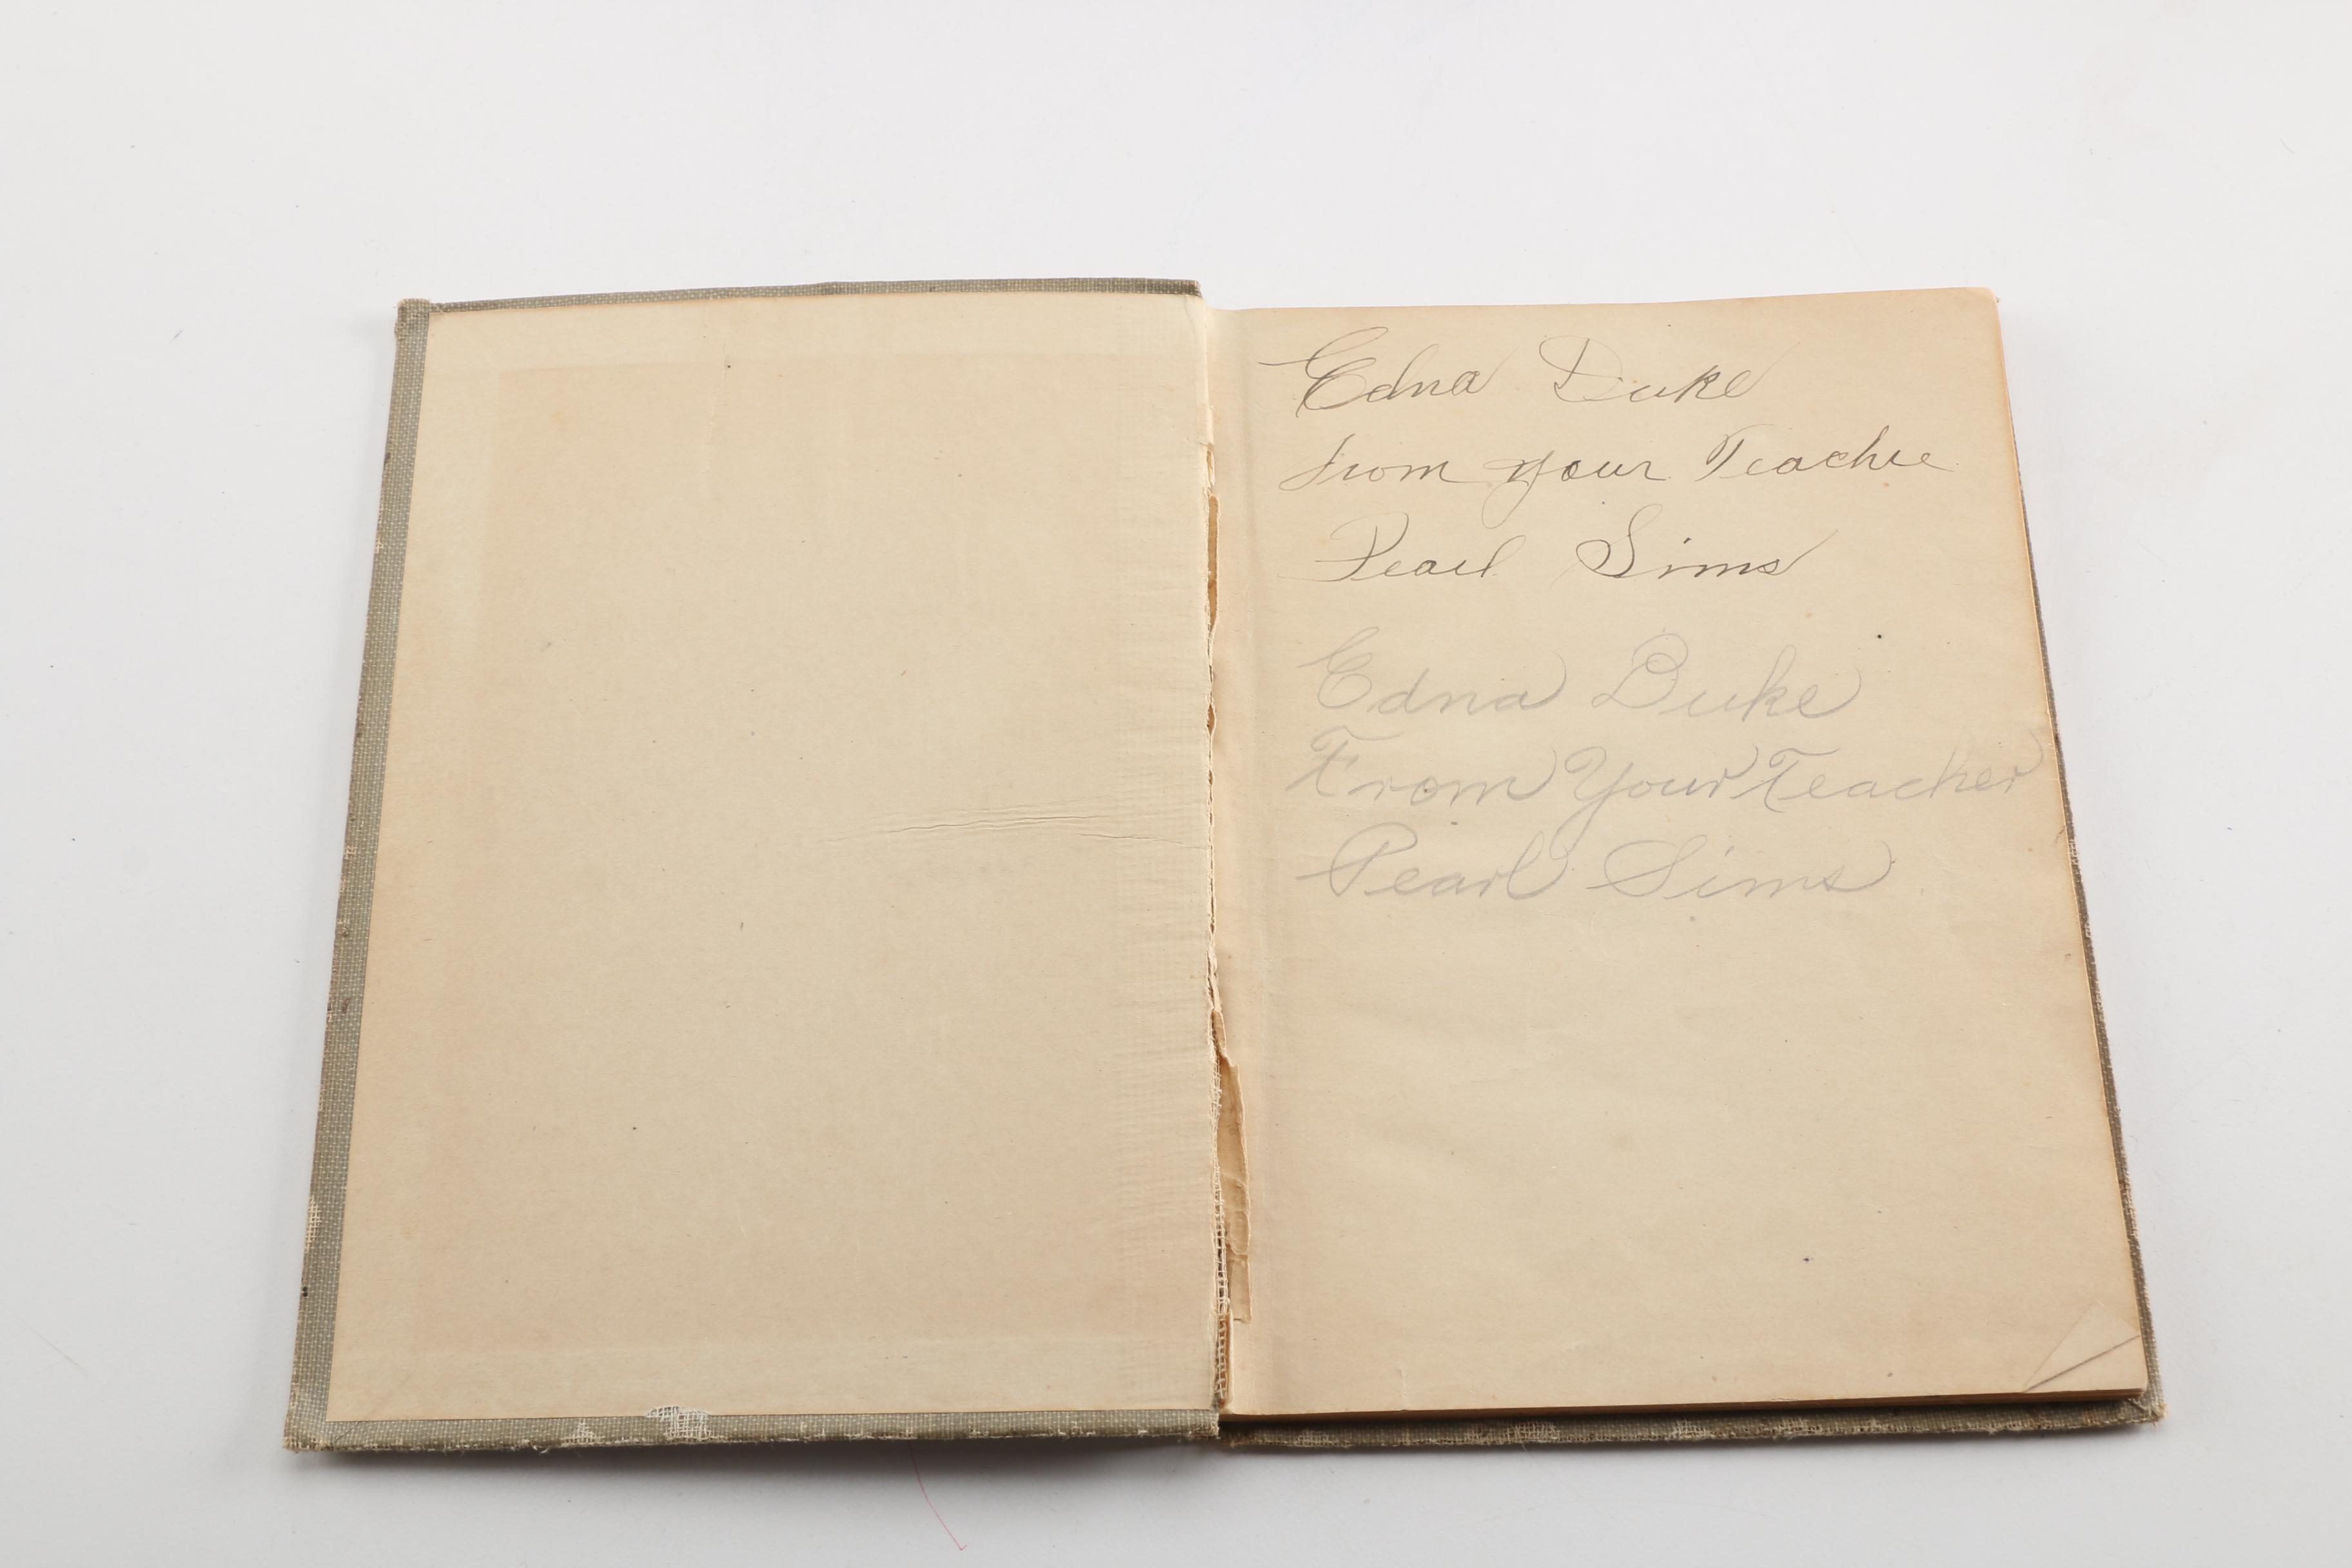 Edna Duke
from your Teacher
Pearl Sims
Edna Duke
From Your Teacher
Pearl Sims